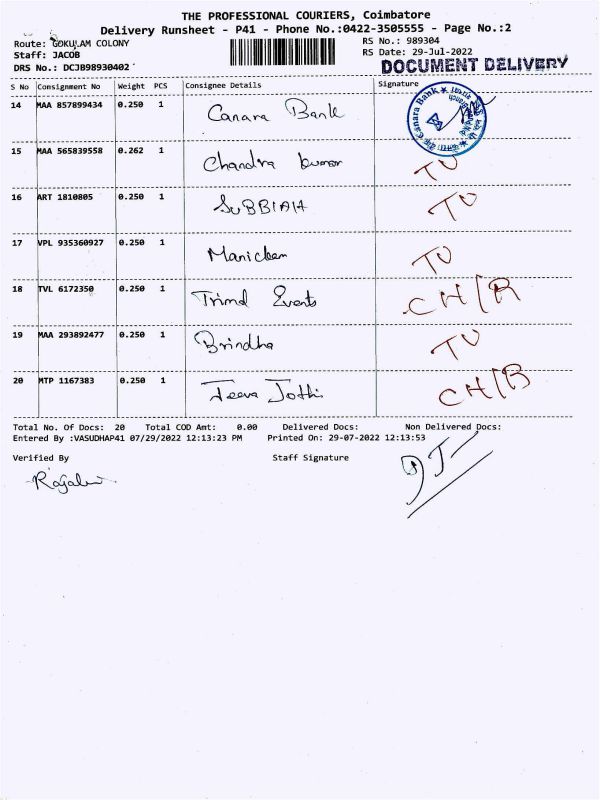 THE PROFESSIONAL COURIERS, Coimbatore
Delivery Runsheet - P41 - Phone No.:0422-3505555 - Page No.:2
Route: GOKULAM COLONY
RS No.: 989304
Staff: JACOB
RS Date: 29-Jul-2022
DRS No.: DCJB98930402
DOCUMENT DELIVERY
S No Consignment No Weight PCS Consignee Details Signature
14 MAA 857899434 0.250 1 Canara Bank
Canara Bank
15 MAA 565839558 0.262 1 Chandra kumar TU
16 ART 1810805 0.250 1 SUBBIAH TU
17 VPL 935360927 0.250 1 Manickam TU
18 TVL 6172350 0.250 1 Trimd Events CH/R
19 MAA 293892477 0.250 1 Brindha TU
20 MTP 1167383 0.250 1 Jeeva Jothi CH/B
Total No. Of Docs: 20 Total COD Amt: 0.00 Delivered Docs: Non Delivered Docs:
Entered By :VASUDHAP41 07/29/2022 12:13:23 PM Printed On: 29-07-2022 12:13:53
Verified By Staff Signature